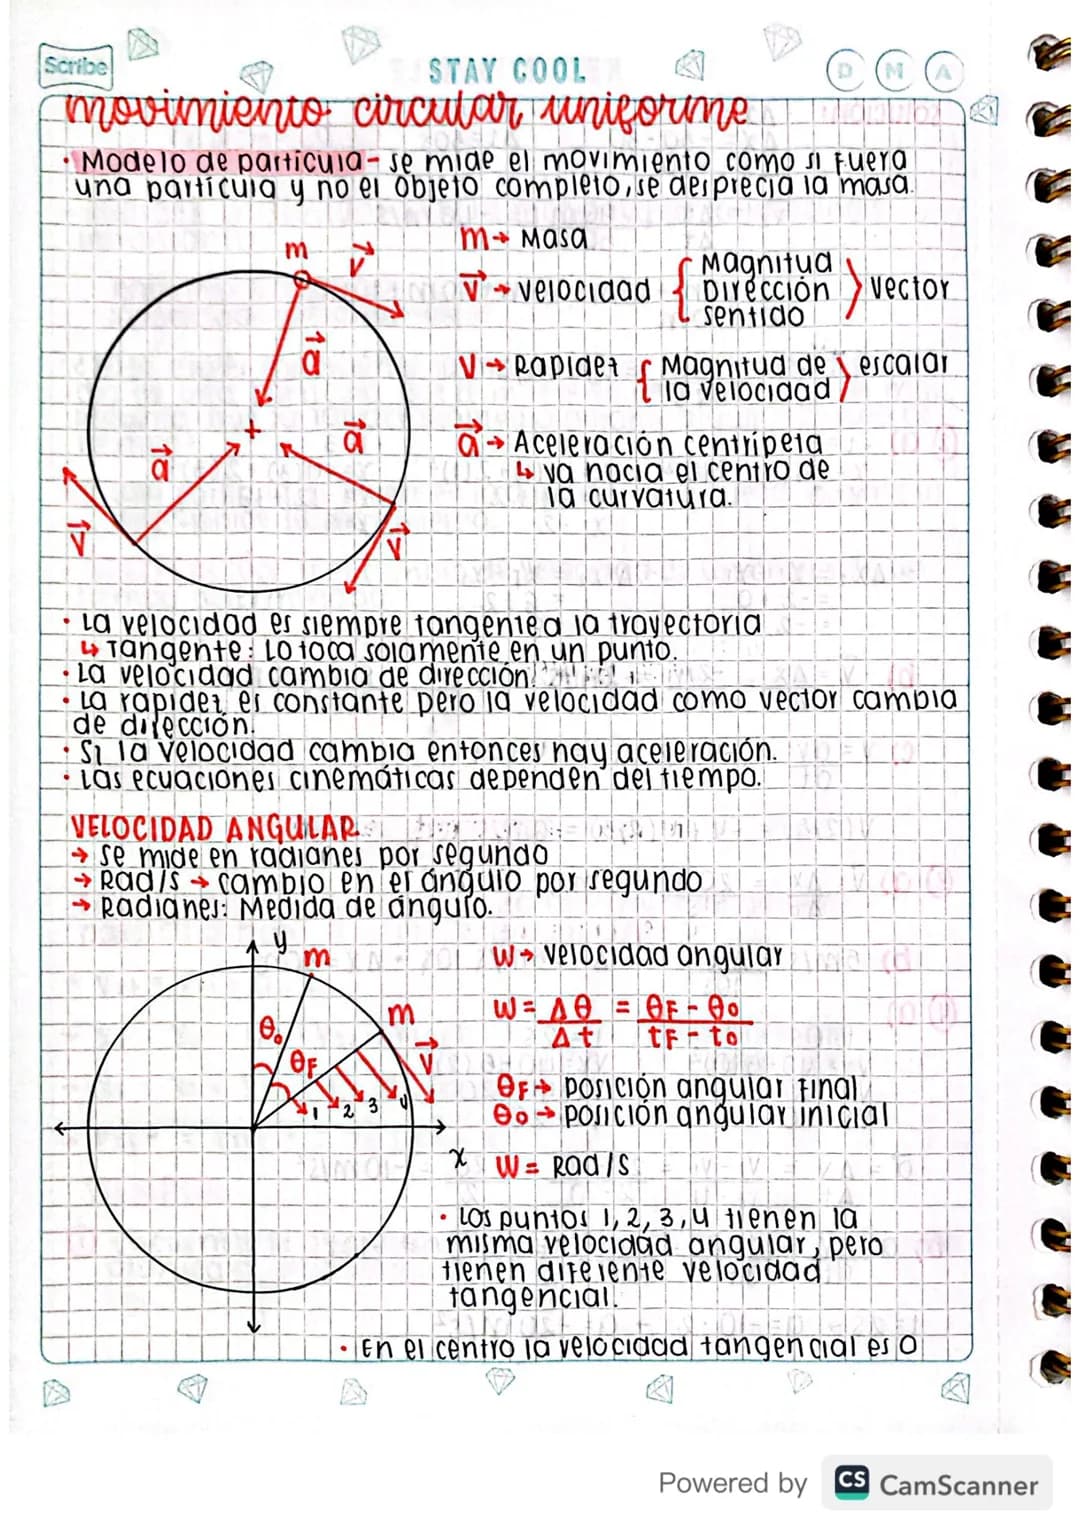 Scribe
STAY COOL
D M A
movimiento circular uniforme
• Modelo de partícula - se mide el movimiento como si fuera
una partícula y no el objeto completo, se desprecia la masa.
m → Masa
m
v⃗
v⃗ → velocidad { Magnitud
Dirección } vector
sentido
a⃗
v → Rapidez { Magnitud de } escalar
la velocidad
a⃗
a⃗
a⃗ → Aceleración centrípeta
↳ va hacia el centro de
la curvatura.
v⃗
v⃗
• La velocidad es siempre tangente a la trayectoria
↳ Tangente: Lo toca solamente en un punto.
• La velocidad cambia de dirección.
• La rapidez es constante pero la velocidad como vector cambia
de dirección.
• Si la velocidad cambia entonces hay aceleración.
• Las ecuaciones cinemáticas dependen del tiempo.
VELOCIDAD ANGULAR
→ se mide en radianes por segundo
→ Rad/s → cambio en el ángulo por segundo
→ Radianes: Medida de ángulo.
y
m
W → velocidad angular
m
W = Δθ / Δt = θF - θ0 / tF - t0
θ0
θF
v⃗
1 2 3 4
θF → posición angular final
θ0 → posición angular inicial
x
W = Rad/s
• Los puntos 1, 2, 3, 4 tienen la
misma velocidad angular, pero
tienen diferente velocidad
tangencial.
• En el centro la velocidad tangencial es 0
Powered by CS CamScanner